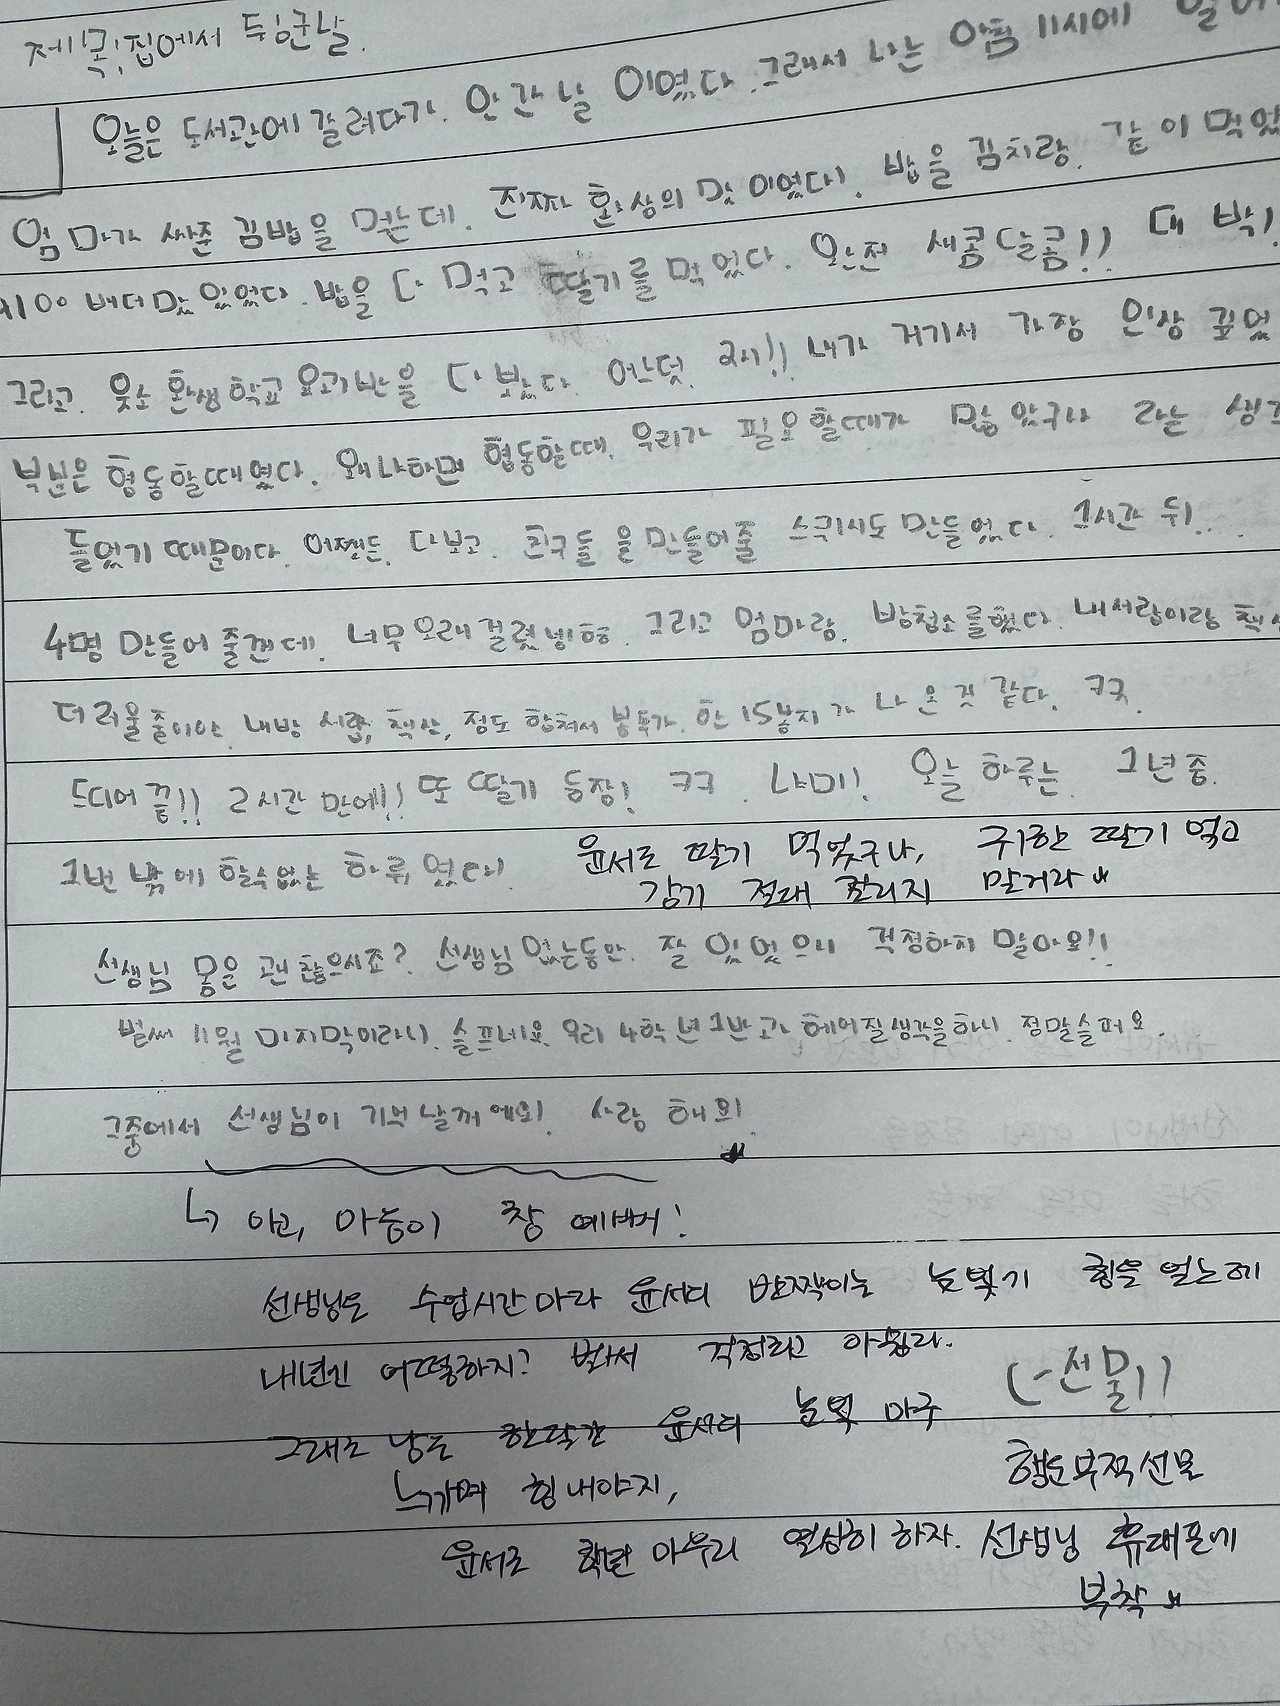 제목: 집에서 뒹군날.
오늘은 도서관에 갈려다가. 안 간 날 이였다. 그래서 나는 아침 11시에
엄마가 싸준 김밥을 먹는데. 진짜 환상의 맛 이였다!. 밥을 김치랑. 같이 먹었
100 배 더 맛 있었다. 밥을 다 먹고 딸기를 먹었다. 완전 새콤달콤!! 대박!
그리고. 웃소 환생학교 요괴반을 다 봤다. 어느덧. 2시!! 내가 거기서 가장 인상 깊었
부분은 협동할때였다. 왜냐하면 협동할때. 우리가 필요할때가 많았구나 라는 생각
들었기 때문이다. 어쨌든. 다보고. 친구들 을 만들어줄 스퀴시도 만들었다. 1시간 뒤..
4명 만들어 줄건데. 너무 오래 걸렸넹ㅎㅎ. 그리고 엄마랑. 방청소를했다. 내서랍이랑
더러울줄이야. 내방 서랍, 책상, 정도 합쳐서 봉투가. 한 15봉지가 나온것 같다. ㅋㅋ.
드디어 끝!! 2시간 만에!! 또 딸기 등장! ㅋㅋ. 냐미!. 오늘 하루는 1년 중.
1번 밖에 할수없는 하루 였다!
윤서도 딸기 먹었구나, 귀한 딸기 먹고
감기 절대 걸리지 말거라
선생님 몸은 괜찮으시죠? 선생님 없는동안. 잘 있었으니 걱정하지 말아요!!
벌써 11월 마지막이라니. 슬프네요. 우리 4학년 1반과 헤어질생각을하니. 정말슬퍼요.
그중에서 선생님이 기억 날꺼예요!. 사랑 해요!
↳ 아고, 마음이 참 예뻐!
선생님은 수업시간마다 윤서의 반짝이는 눈빛에 힘을 얻는데
내년엔 어떻하지? 벌써 걱정되고 아쉽다.
(-선물))
그래도 남은 한달간 윤서의 눈빛 마구
느끼며 힘내야지,
행운부적선물
윤서도 학년 마무리 열심히 하자. 선생님 휴대폰에
부착